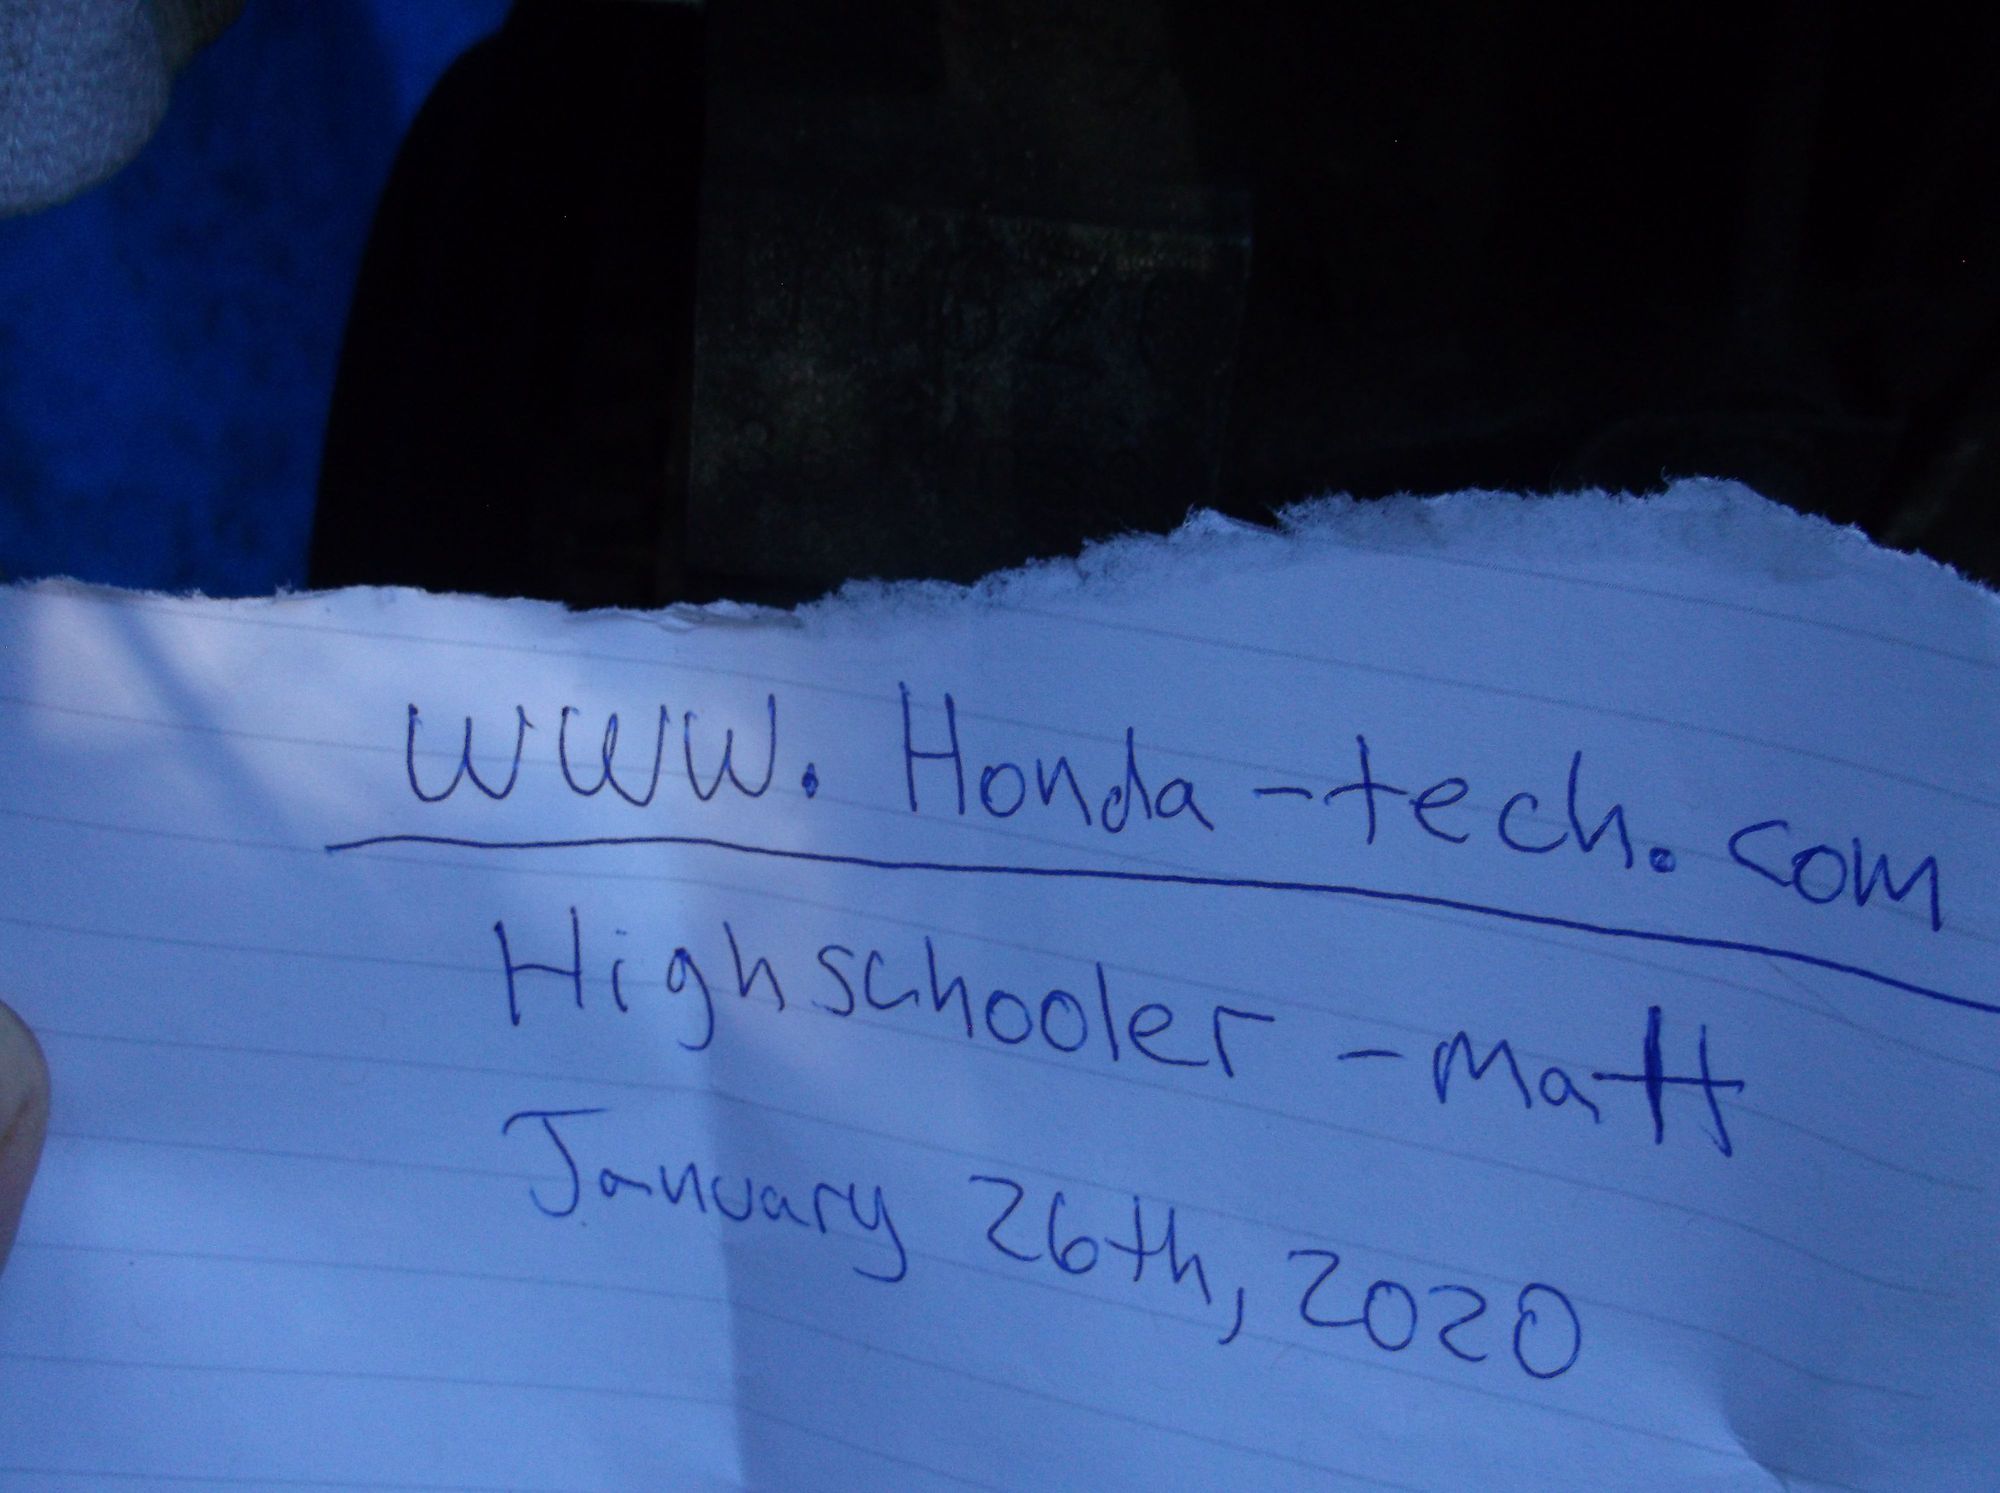 www.Honda-tech.com
Highschooler-Matt
January 26th, 2020